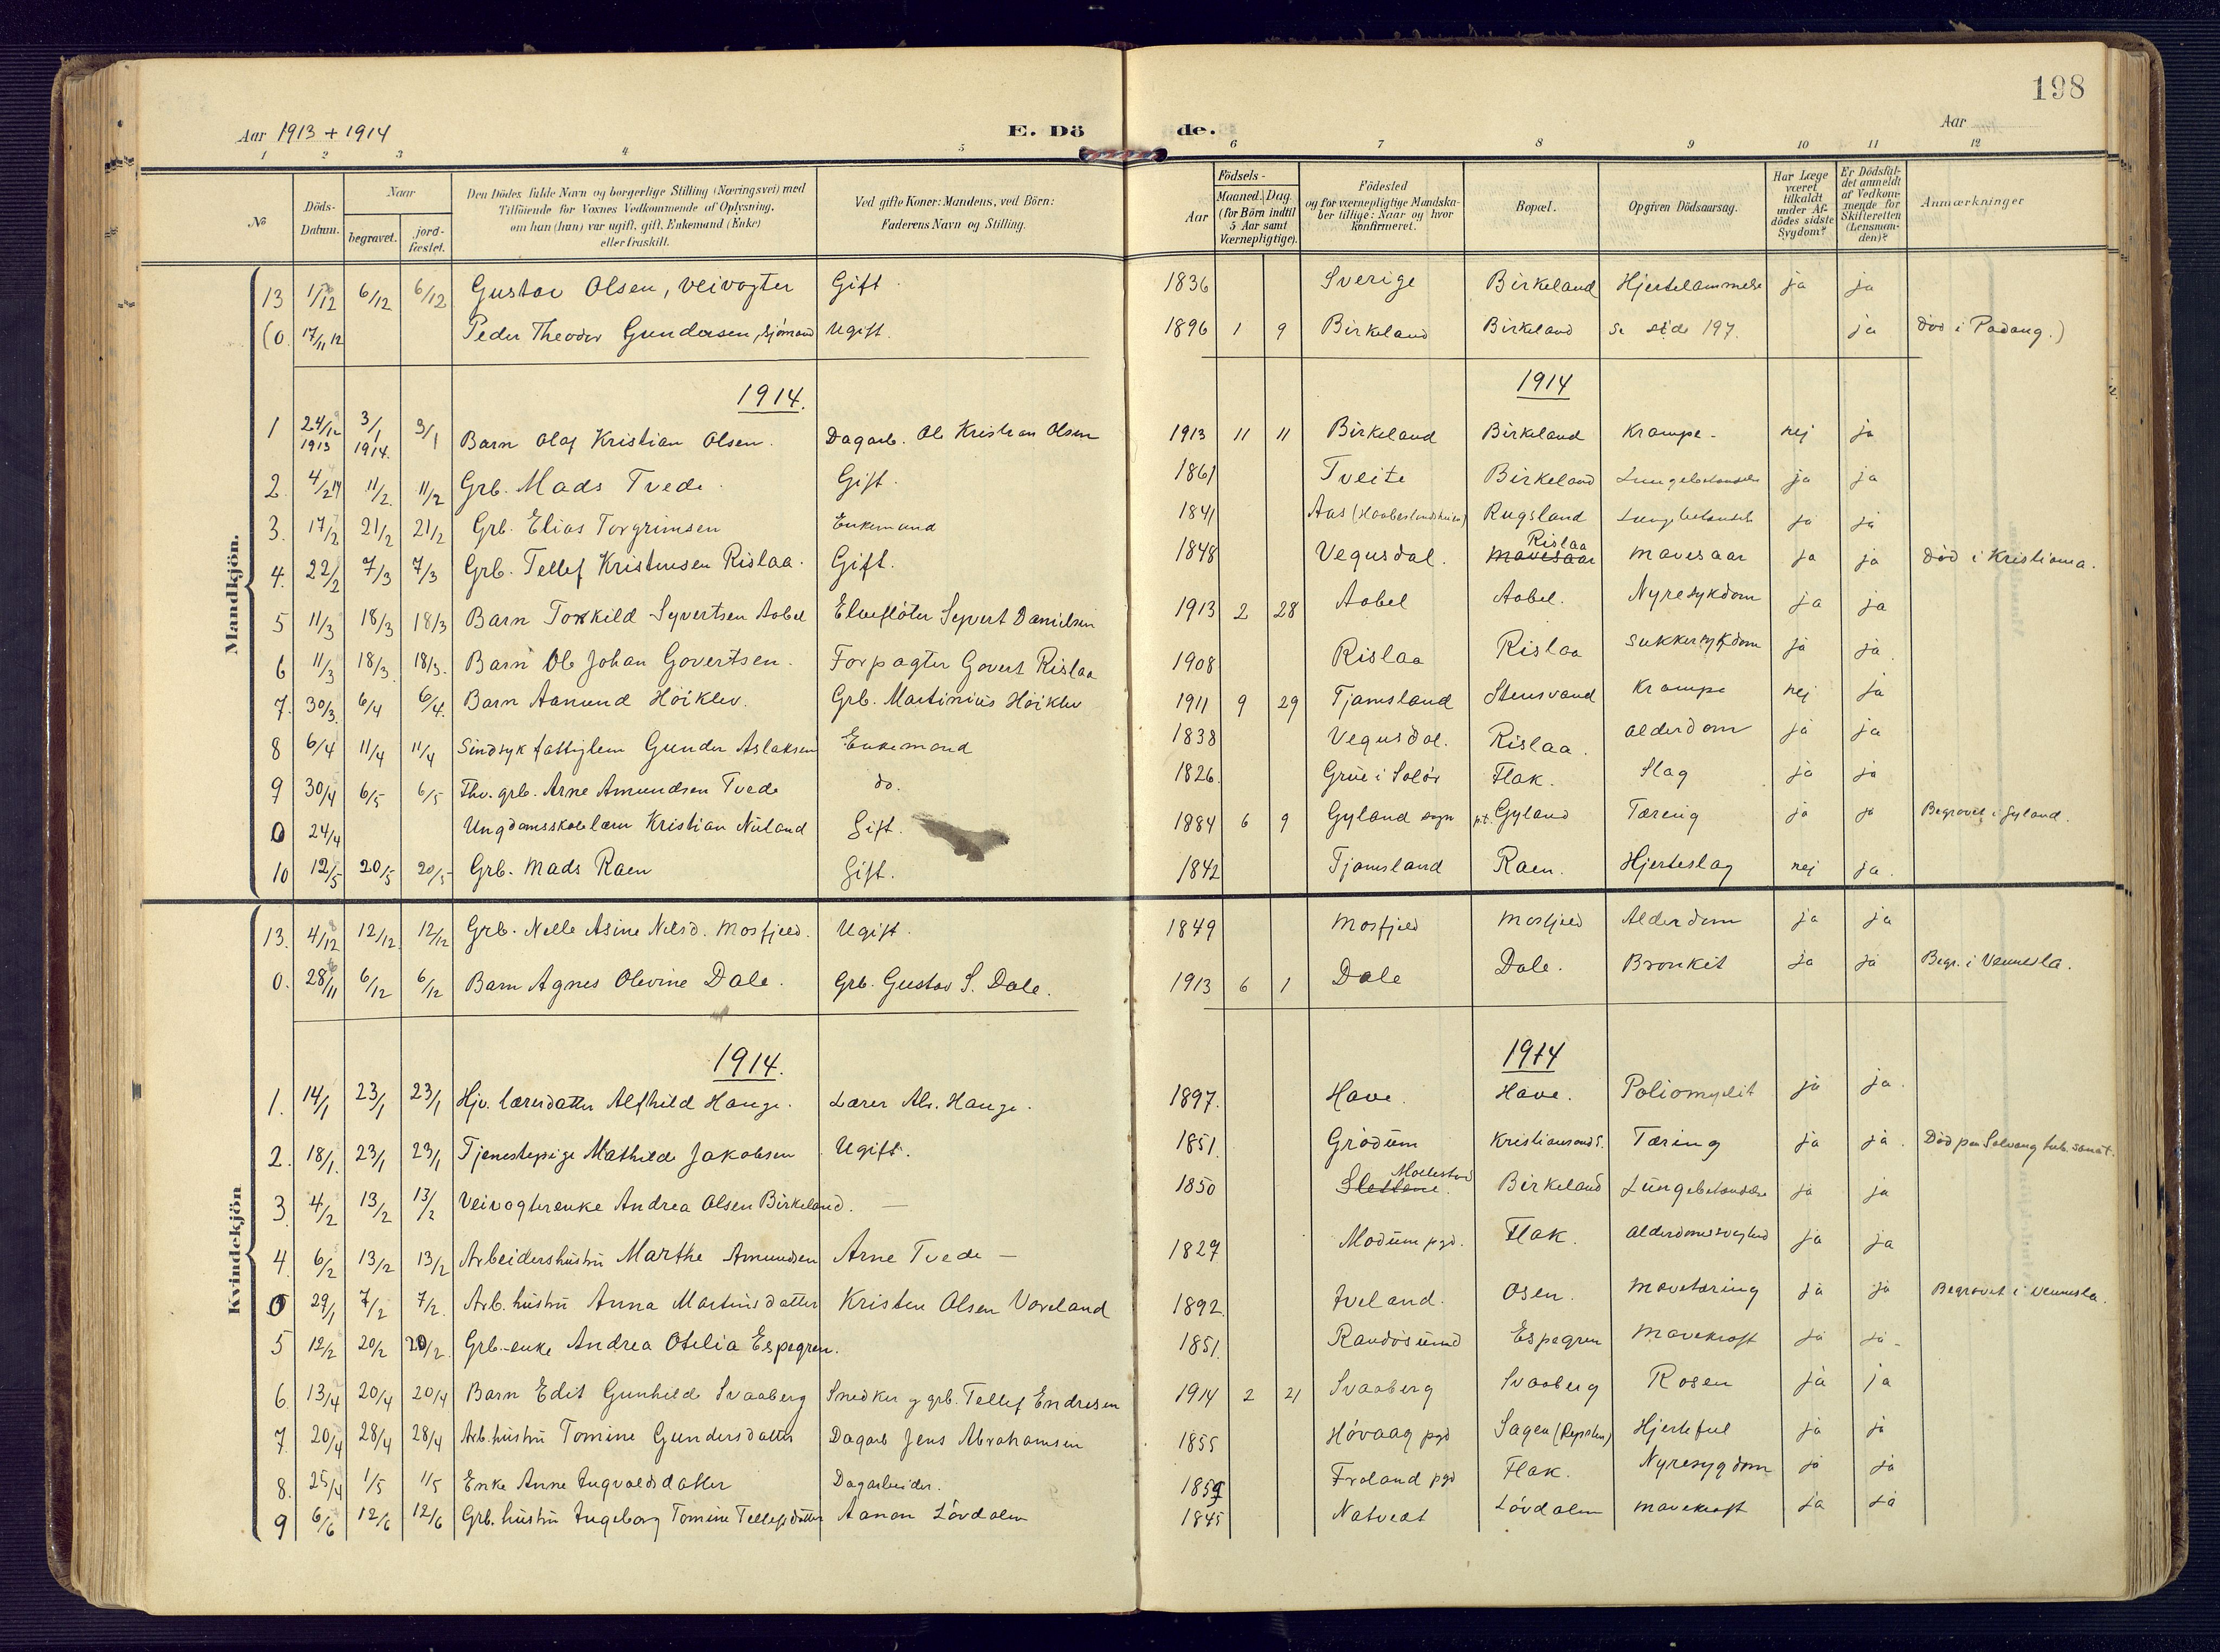 198
Aar 1913 + 1914
E. Dö
de.
Aar
1 2 3 4 5 6 7 8 9 10 11 12
№
Döds-Datum.
Naar
begravet.
jord-fæstet.
Den Dödes fulde Navn og borgerlige Stilling (Næringsvei) med
Tilföiende for Voxnes Vedkommende af Oplysning,
om han (hun) var ugift, gift, Enkemand (Enke)
eller fraskilt.
Ved gifte Koner: Mandens, ved Börn:
Faderens Navn og Stilling.
Födsels-
Aar
Maaned. Dag
(for Börn indtil
5 Aar samt
Værnepligtige).
Födested
og for værnepligtige Mandska-
ber tillige: Naar og hvor
konfirmeret.
Bopæl.
Opgiven Dödsaarsag.
Har Læge
været
tilkaldt
under Af-
dödes sidste
Sygdom?
Er Dödsfal-
det anmeldt
af Vedkom-
mende for
Skifteretten
(Lensman-
den)?
Anmærkninger
Mandkjön.
13 1/12 6/12 6/12 Gustav Olsen, veivogter Gift. 1836 Sverige Birkeland Hjertelammelse ja ja
(0. 17/11 12 Peder Theodor Gundersen, sjömand Ugift. 1896 1 9 Birkeland Birkeland Se side 197. ja död i Padang.)
1914. 1914
1 24/12 1913 3/1 1914. 3/1 Barn Olaf Kristian Olsen. Dagarb. Ole Kristian Olsen 1913 11 11 Birkeland Birkeland Krampe. nej ja
2. 4/2 14 11/2. 11/2 Grb. Mads Tvede. Gift. 1861 Tveite Birkeland Lungebetændelse ja ja
3. 17/2 21/2 21/2 Grb. Elias Torgrimsen Enkemand 1841 Aas (Haabeslandsheien) Rugsland Lungebetændelse ja ja
4. 22/2 7/3 7/3 Grb. Tellef Kristensen Rislaa. Gift. 1848 Vegusdal. Mavesaar Rislaa Mavesaar ja ja död i Kristiania.
5 11/3 18/3 18/3 Barn Torkild Syvertsen Aabel Elveflöter Syvert Danielsen 1913 2 28 Aabel Aabel. Nyresykdom ja ja
6 11/3 18/3. 18/3. Barn Ole Johan Govertsen. Forpagter Govert Rislaa 1908 Rislaa Rislaa Sukkersykdom ja ja.
7. 30/3. 6/4 6/4. Barn Aanund Höiklev. Grb. Martinius Höiklev 1911 9 29 Tjamsland Stensvand Krampe nej ja
8 6/4 11/4 11/4 Sindsyk fattiglem Gunder Aslaksen Enkemand 1838 Vegusdal. Rislaa. alderdom ja ja
9 30/4 6/5 6/5 Fhv. grb. Arne Amundsen Tvede do. 1826. Grue i Solör Flak. Slag ja ja
0 24/4 Ungdomsskolelærer Kristian Nuland Gift. 1884 6 9 Gyland sogn p.t. Gyland Tæring ja ja Begravet i Gyland.
10 12/5 20/5 20/5 Grb. Mads Raen Gift. 1842 Tjamsland Raen. Hjerteslag nej ja.
Kvindekjön
13. 4/12 12/12 12/12 Grb. Nelle Asine Nilsd. Mosfjeld. Ugift. 1849 Mosfjeld Mosfjeld Alderdom ja ja
0. 28/11 6/12 6/12 Barn Agnes Olevine Dale. Grb. Gustav S. Dale. 1913 6 1 Dale Dale. Bronkit ja ja Begr. i Vennesla.
1914. 1914
1. 14/1 23/1 23/1 Hjv. lærerdatter Alfhild Hauge. Lærer Als. Hauge. 1897. Have. Have. Poliomyelit ja ja.
2. 18/1. 23/1 23/1 Tjenestepige Mathilde Jakobsen Ugift. 1851. Grödum Kristiansand S. Tæring ja ja. Död paa Solvang tub. sanat.
3. 4/2 13/2 13/2 Veivogterenke Andrea Olsen Birkeland. — 1850 Slettene. Moelestad Birkeland Lungebetændelse ja ja
4. 6/2 13/2 13/2 Arbeidershustru Marthe Amundsen Arne Tvede — 1829 Modum pgd. Flak. Alderdomssvaghed ja ja
0 29/1 7/2 7/2. Arb. hustru Anna Martinsdatter Kristen Olsen Vaveland 1892. Iveland. Osen. Mavetæring ja ja Begravet i Vennesla.
5 12/2 20/2 20/2. Grb.-enke Andrea Otelia Espegren. 1851. Randösund Espegren Mavekræft ja ja.
6. 13/4 20/4 20/4 Barn Edit Gunhilde Svaaberg Snedker og grb. Tellef Endresen 1914 2 21 Svaaberg Svaaberg Rosen ja ja
7. 20/4 28/4 28/4 Arb. hustru Tomine Gundersdatter Dagarb. Jens Abrahamsen 1855 Hövaag pgd Sagen (Repstøen) Hjertefeil ja ja
8. 25/4 1/5 1/5 Enke Anne Ingvaldsdatter Dagarbeider. 1859 Froland pgd Flak. Nyresygdom ja ja
9 6/6 12/6 12/6 Grb. hustru Ingeborg Tomine Tellefsdatter Aanon Lövdalen 1845 Natvedt Lövdalen Mavekræft ja ja